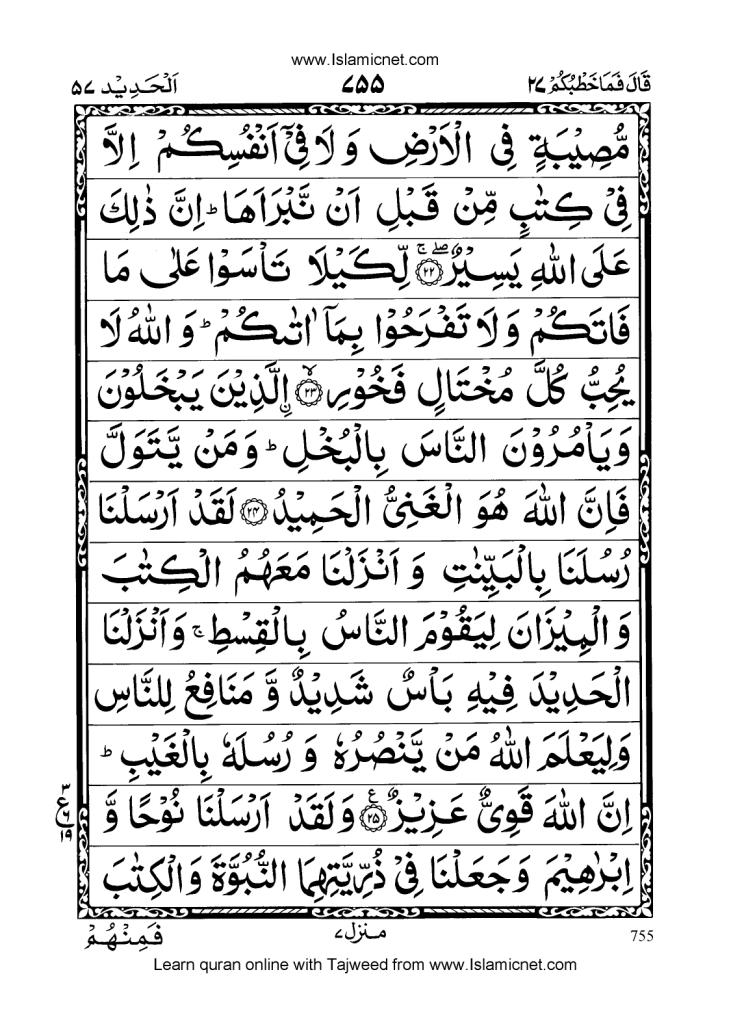 www.Islamicnet.com
قَالَ فَمَا خَطْبُكُمْ ۲۷
۷۵۵
اَلْحَدِيْد ۵۷
مُّصِيْبَةٍ فِي الْاَرْضِ وَلَا فِيْٓ اَنْفُسِكُمْ اِلَّا
فِيْ كِتٰبٍ مِّنْ قَبْلِ اَنْ نَّبْرَاَهَا ؕ اِنَّ ذٰلِكَ
عَلَى اللّٰهِ يَسِيْرٌ ۚۖ ﴿۲۲﴾ لِّكَيْلَا تَاْسَوْا عَلٰى مَا
فَاتَكُمْ وَلَا تَفْرَحُوْا بِمَآ اٰتٰىكُمْ ؕ وَاللّٰهُ لَا
يُحِبُّ كُلَّ مُخْتَالٍ فَخُوْرِ ۙ ﴿۲۳﴾ اۨلَّذِيْنَ يَبْخَلُوْنَ
وَيَاْمُرُوْنَ النَّاسَ بِالْبُخْلِ ؕ وَمَنْ يَّتَوَلَّ
فَاِنَّ اللّٰهَ هُوَ الْغَنِيُّ الْحَمِيْدُ ﴿۲۴﴾ لَقَدْ اَرْسَلْنَا
رُسُلَنَا بِالْبَيِّنٰتِ وَاَنْزَلْنَا مَعَهُمُ الْكِتٰبَ
وَالْمِيْزَانَ لِيَقُوْمَ النَّاسُ بِالْقِسْطِ ۚ وَاَنْزَلْنَا
الْحَدِيْدَ فِيْهِ بَاْسٌ شَدِيْدٌ وَّمَنَافِعُ لِلنَّاسِ
وَلِيَعْلَمَ اللّٰهُ مَنْ يَّنْصُرُهٗ وَرُسُلَهٗ بِالْغَيْبِ ؕ
اِنَّ اللّٰهَ قَوِيٌّ عَزِيْزٌ ﴿۲۵﴾ ع وَلَقَدْ اَرْسَلْنَا نُوْحًا وَّ
۳
ع ۶
۱۹
اِبْرٰهِيْمَ وَجَعَلْنَا فِيْ ذُرِّيَّتِهِمَا النُّبُوَّةَ وَالْكِتٰبَ
755
منزل ۷
فَمِنْهُمْ
Learn quran online with Tajweed from www.Islamicnet.com